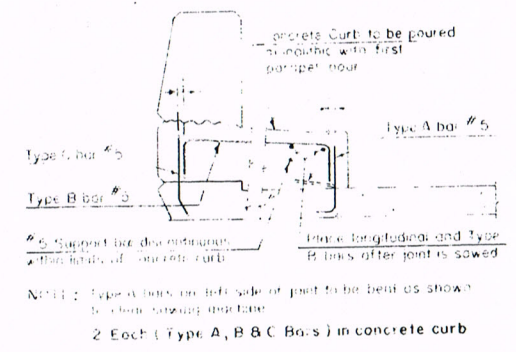 Concrete Curb to be poured
monolithic with first
parapet pour
Type A bar #5
Type C bar #5
Type B bar #5
#5 Support bar discontinuous
within limits of concrete curb
Place longitudinal and Type
B bars after joint is sawed
NOTE: Type A bars on left side of joint to be bent as shown
to clear sawing machine
2 Each ( Type A, B & C Bars ) in concrete curb